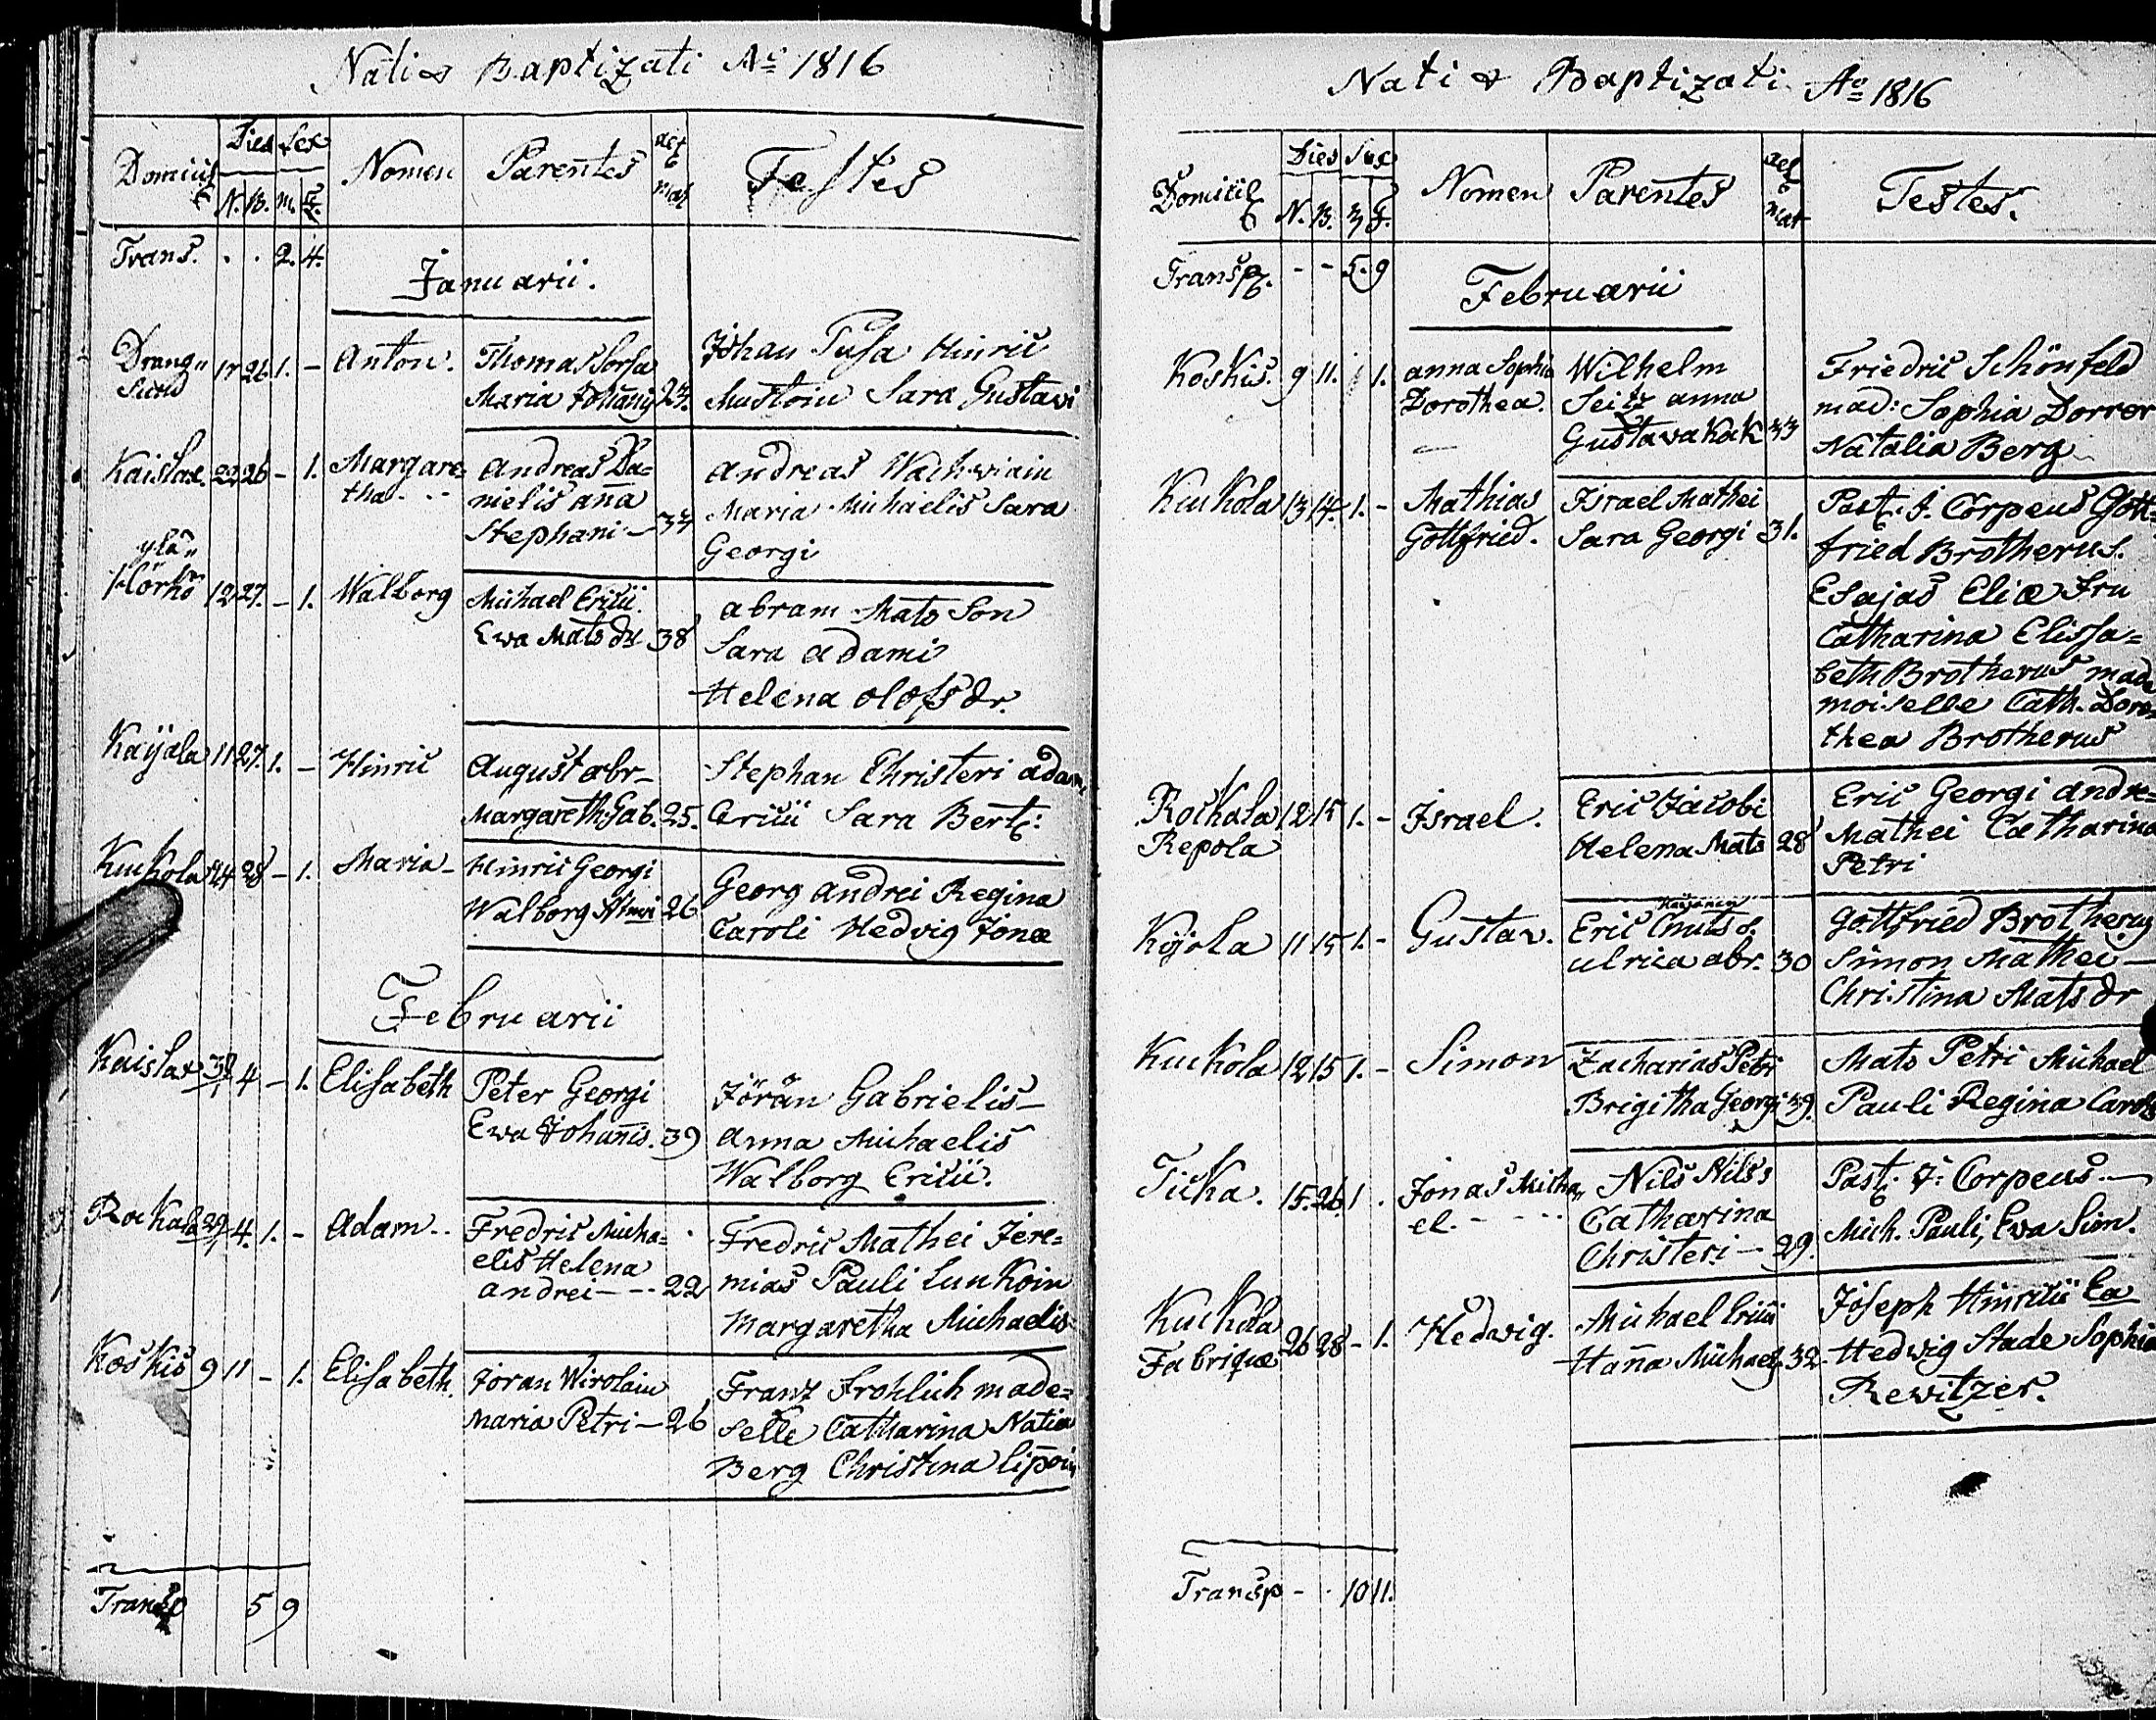 Nati & Baptizati Ao 1816
Domicil Dies Sex Nomen Parentes aet mat Testes
N. B. M. F.
Trans. . . 2. 4.
Januarii.
Drang= 17 26 1. - Anton. Thomas Sorsa Johan Pusa Hinric
sund Maria Johanis 24. Mustoin Sara Gustavi
Kaislax. 22 26 - 1. Margare= Andreas Da= Andreas Wachwiain
tha - - melis aña Maria Michaelis Sara
Stephani - 34 Georgi
yla=
Hörkö 12 27. - 1. Walborg Michael Ericii. abram Mats Son
Ewa Mats dr 38 Sara adami
Helena olofs dr.
Kaÿala 11 27. 1. - Hinric August abr- Stephan Christeri adam
Margareth Gab. 25. Ericii Sara Bert:
Kuckola 24 28 - 1. Maria - Hinric Georgi Georg andrei Regina
Walborg 26 Caroli Hedvig Jonæ
Februarii
Kaislax 4 - 1. Elisabeth Peter Georgi Jöran Gabrielis -
Ewa Johanis. 39 Anna Michaelis
Walborg Ericii.
Rockala 29 4. 1. - Adam - - Fredric Micha= Fredric Mathei Jere=
elis Helena mias Pauli Lunkoin
andrei - - - 22 Margaretha Michaelis
Koskis 9 11 - 1. Elisabeth. Jöran Wirolain Franz Frohlich made=
Maria Petri - 26 selle Catharina Natia
Berg Christina Lipoin
Transp 5 9
Nati & Baptizati Ao 1816
Domicil Dies Sex Nomen Parentes aet mat Testes.
N. B. M F.
Transp. - - 5. 9
Februarii
Koskis. 9 11. 1. anna Sophia Wilhelm Friedric Schönfeld
Dorothea. Seitz anna mad: Sophia Dorrer
Gustava Kak 33 Natalia Berg
Kuckola 13 14. 1. - Mathias Israel Mathei Past. J. Corpeus Gott=
Gottfried. Sara Georgi 31. fried Brotherus.
Esajas Eliæ Fru
Catharina Elissa=
beth Brotherus made
moiselle Cath. Doro=
thea Brotherus
Rockala 12 15 1. - Israel. Eric Jacobi Eric Georgi andre=
Repola Helena Mats 28 Mathei Catharina
Petri
Käjönen
Kÿola 11 15 1. - Gustav. Eric Cnuts s. Gottfried Brotherus
ulrica abr. 30 Simon Mathei -
Christina Mats dr
Kuckola 12 15 1. - Simon Zacharias Petri Mats Petri Michael
Brigitha Georgi 39. Pauli Regina Caroli
Ticka. 15. 26. 1 . Jonas Micha= Nils Nilss Past. J. Corpeus. -
el. - - - Catharina Mich. Pauli, Ewa Sim.
Christeri - 29.
Kuckola 26 28 - 1. Hedwig. Michael Ericii Joseph Hinricii Ea
Fabrique Haña Michael. 32. Hedwig Stade Sophia
Rewitzer.
Transp - - 10 11.